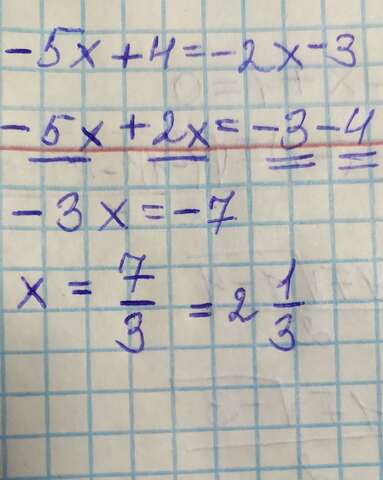 -5x+4=-2x-3
-5x+2x=-3-4
-3x=-7
x = 7/3 = 2 1/3